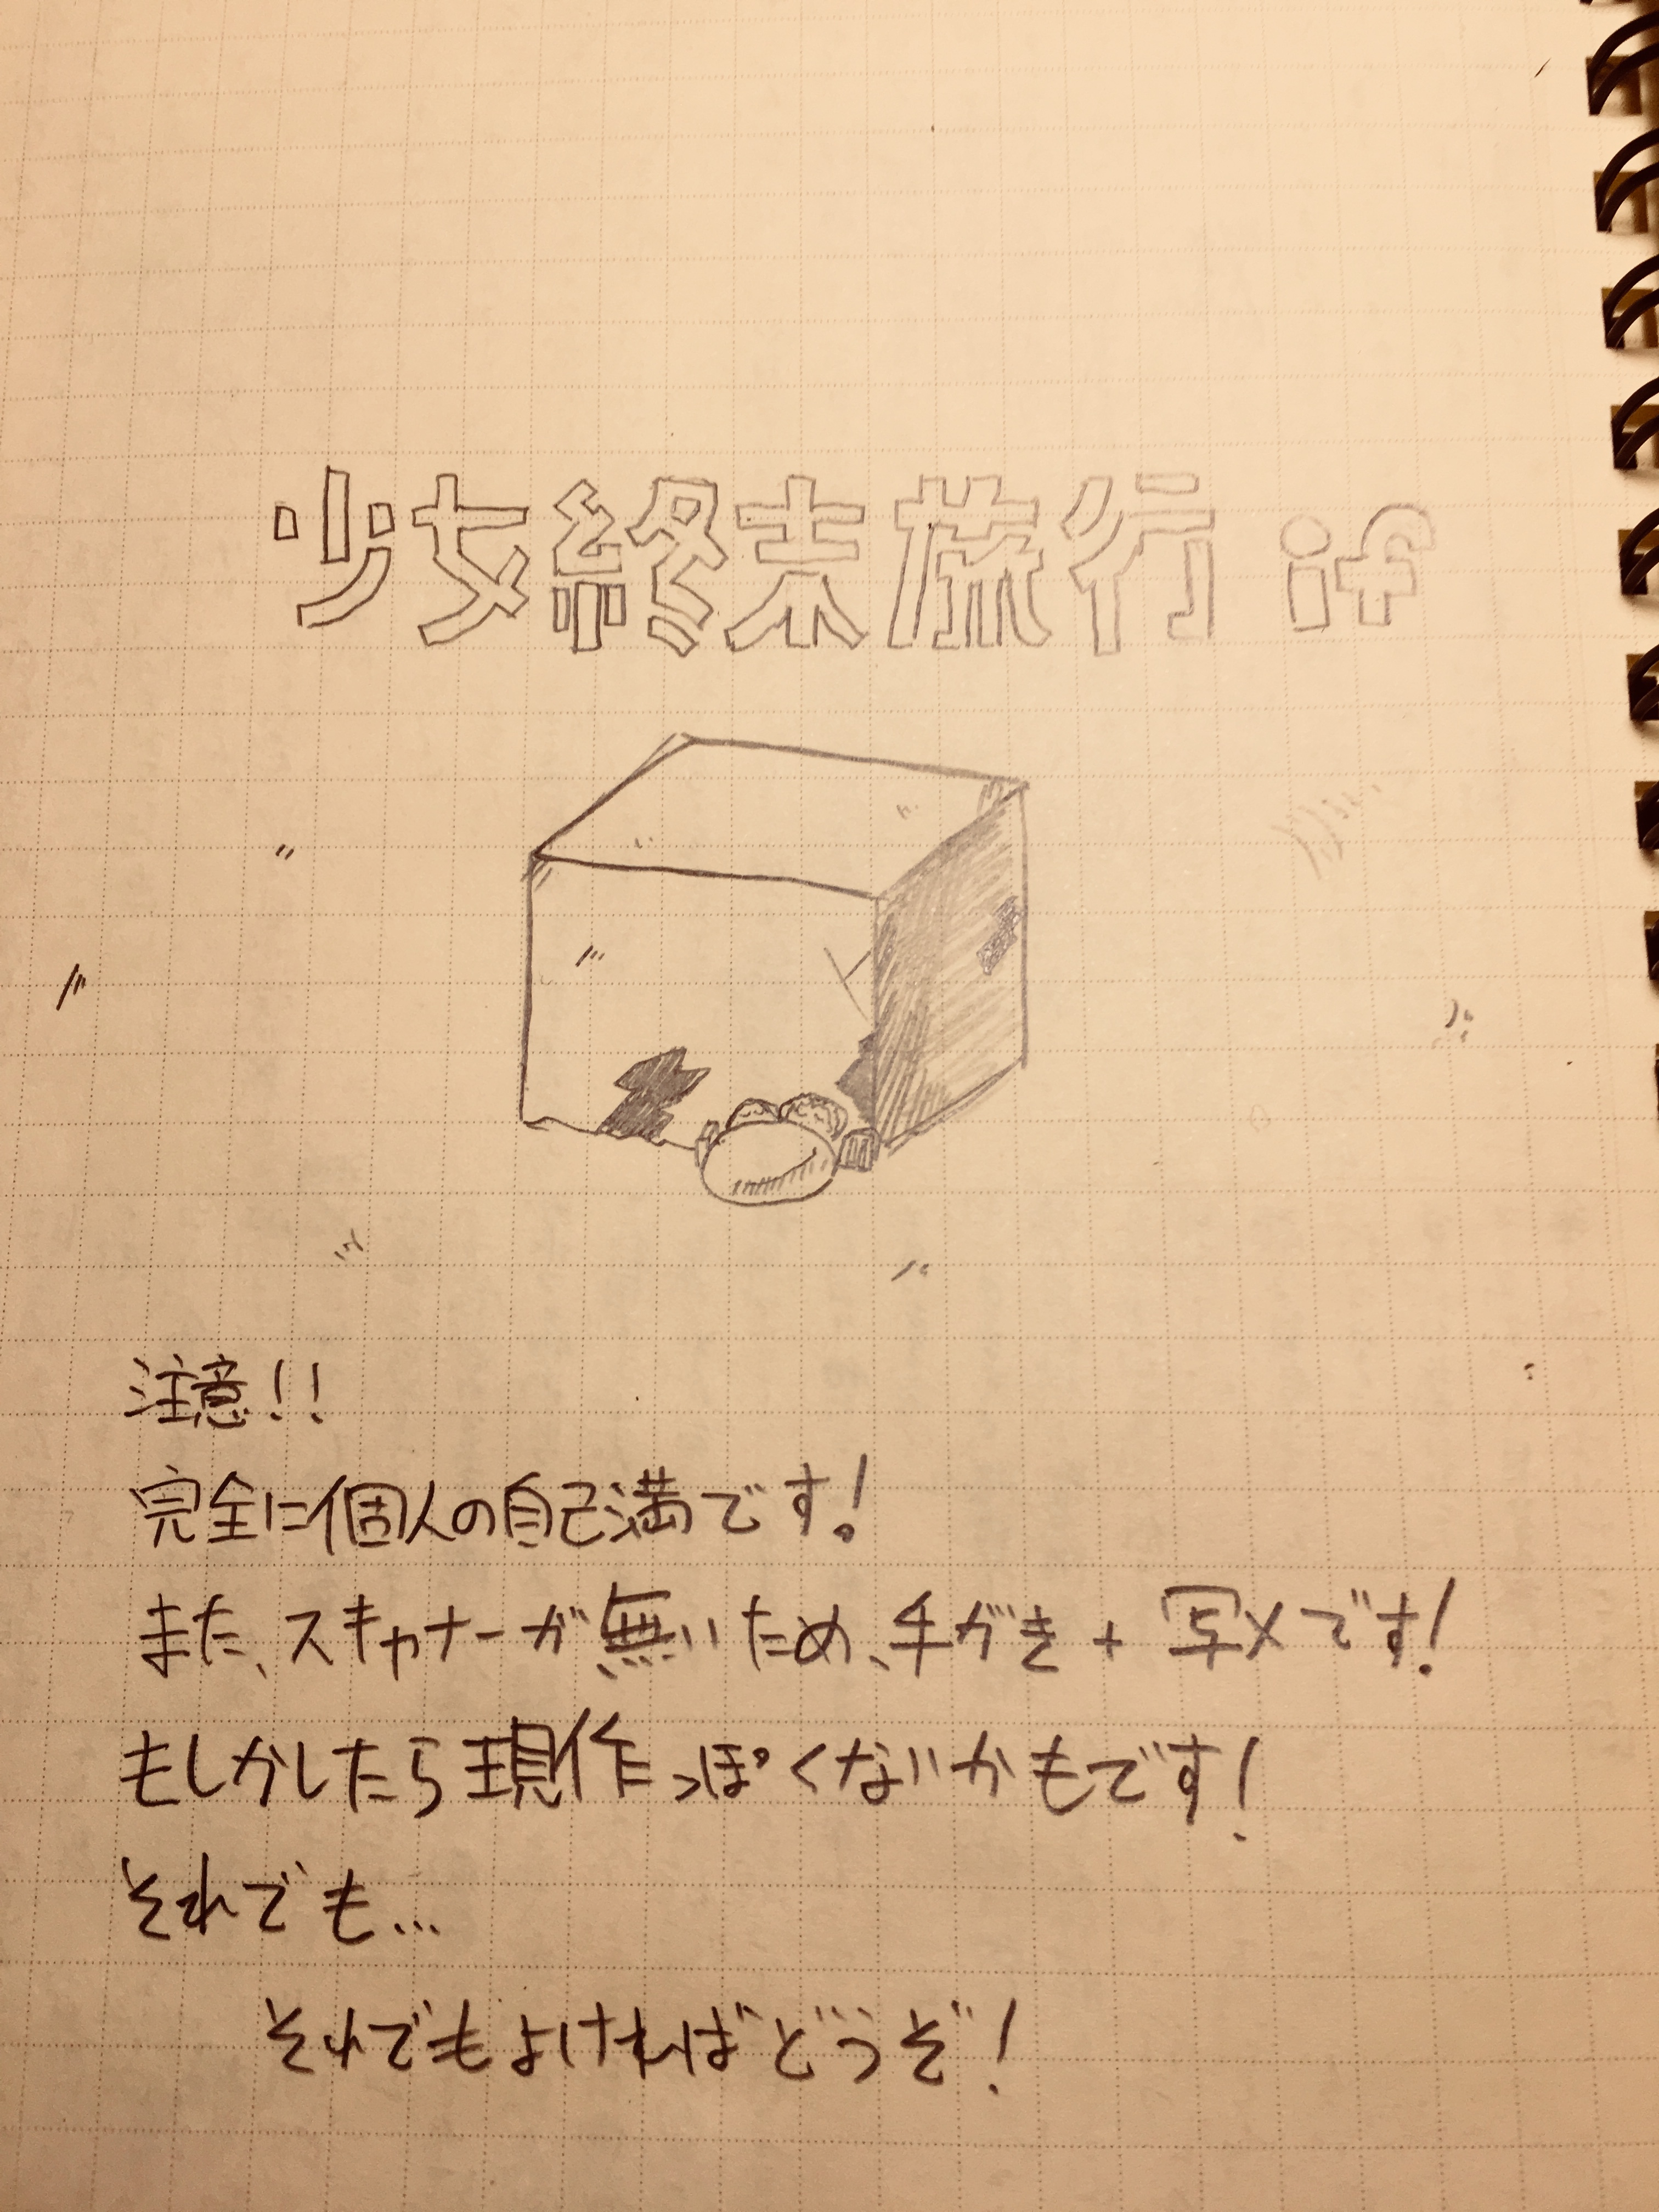 少女終末旅行 if
注意!!
完全に個人の自己満です!
また、スキャナーが無いため、手がき+写メです!
もしかしたら現作っぽくないかもです!
それでも...
それでもよければどうぞ!